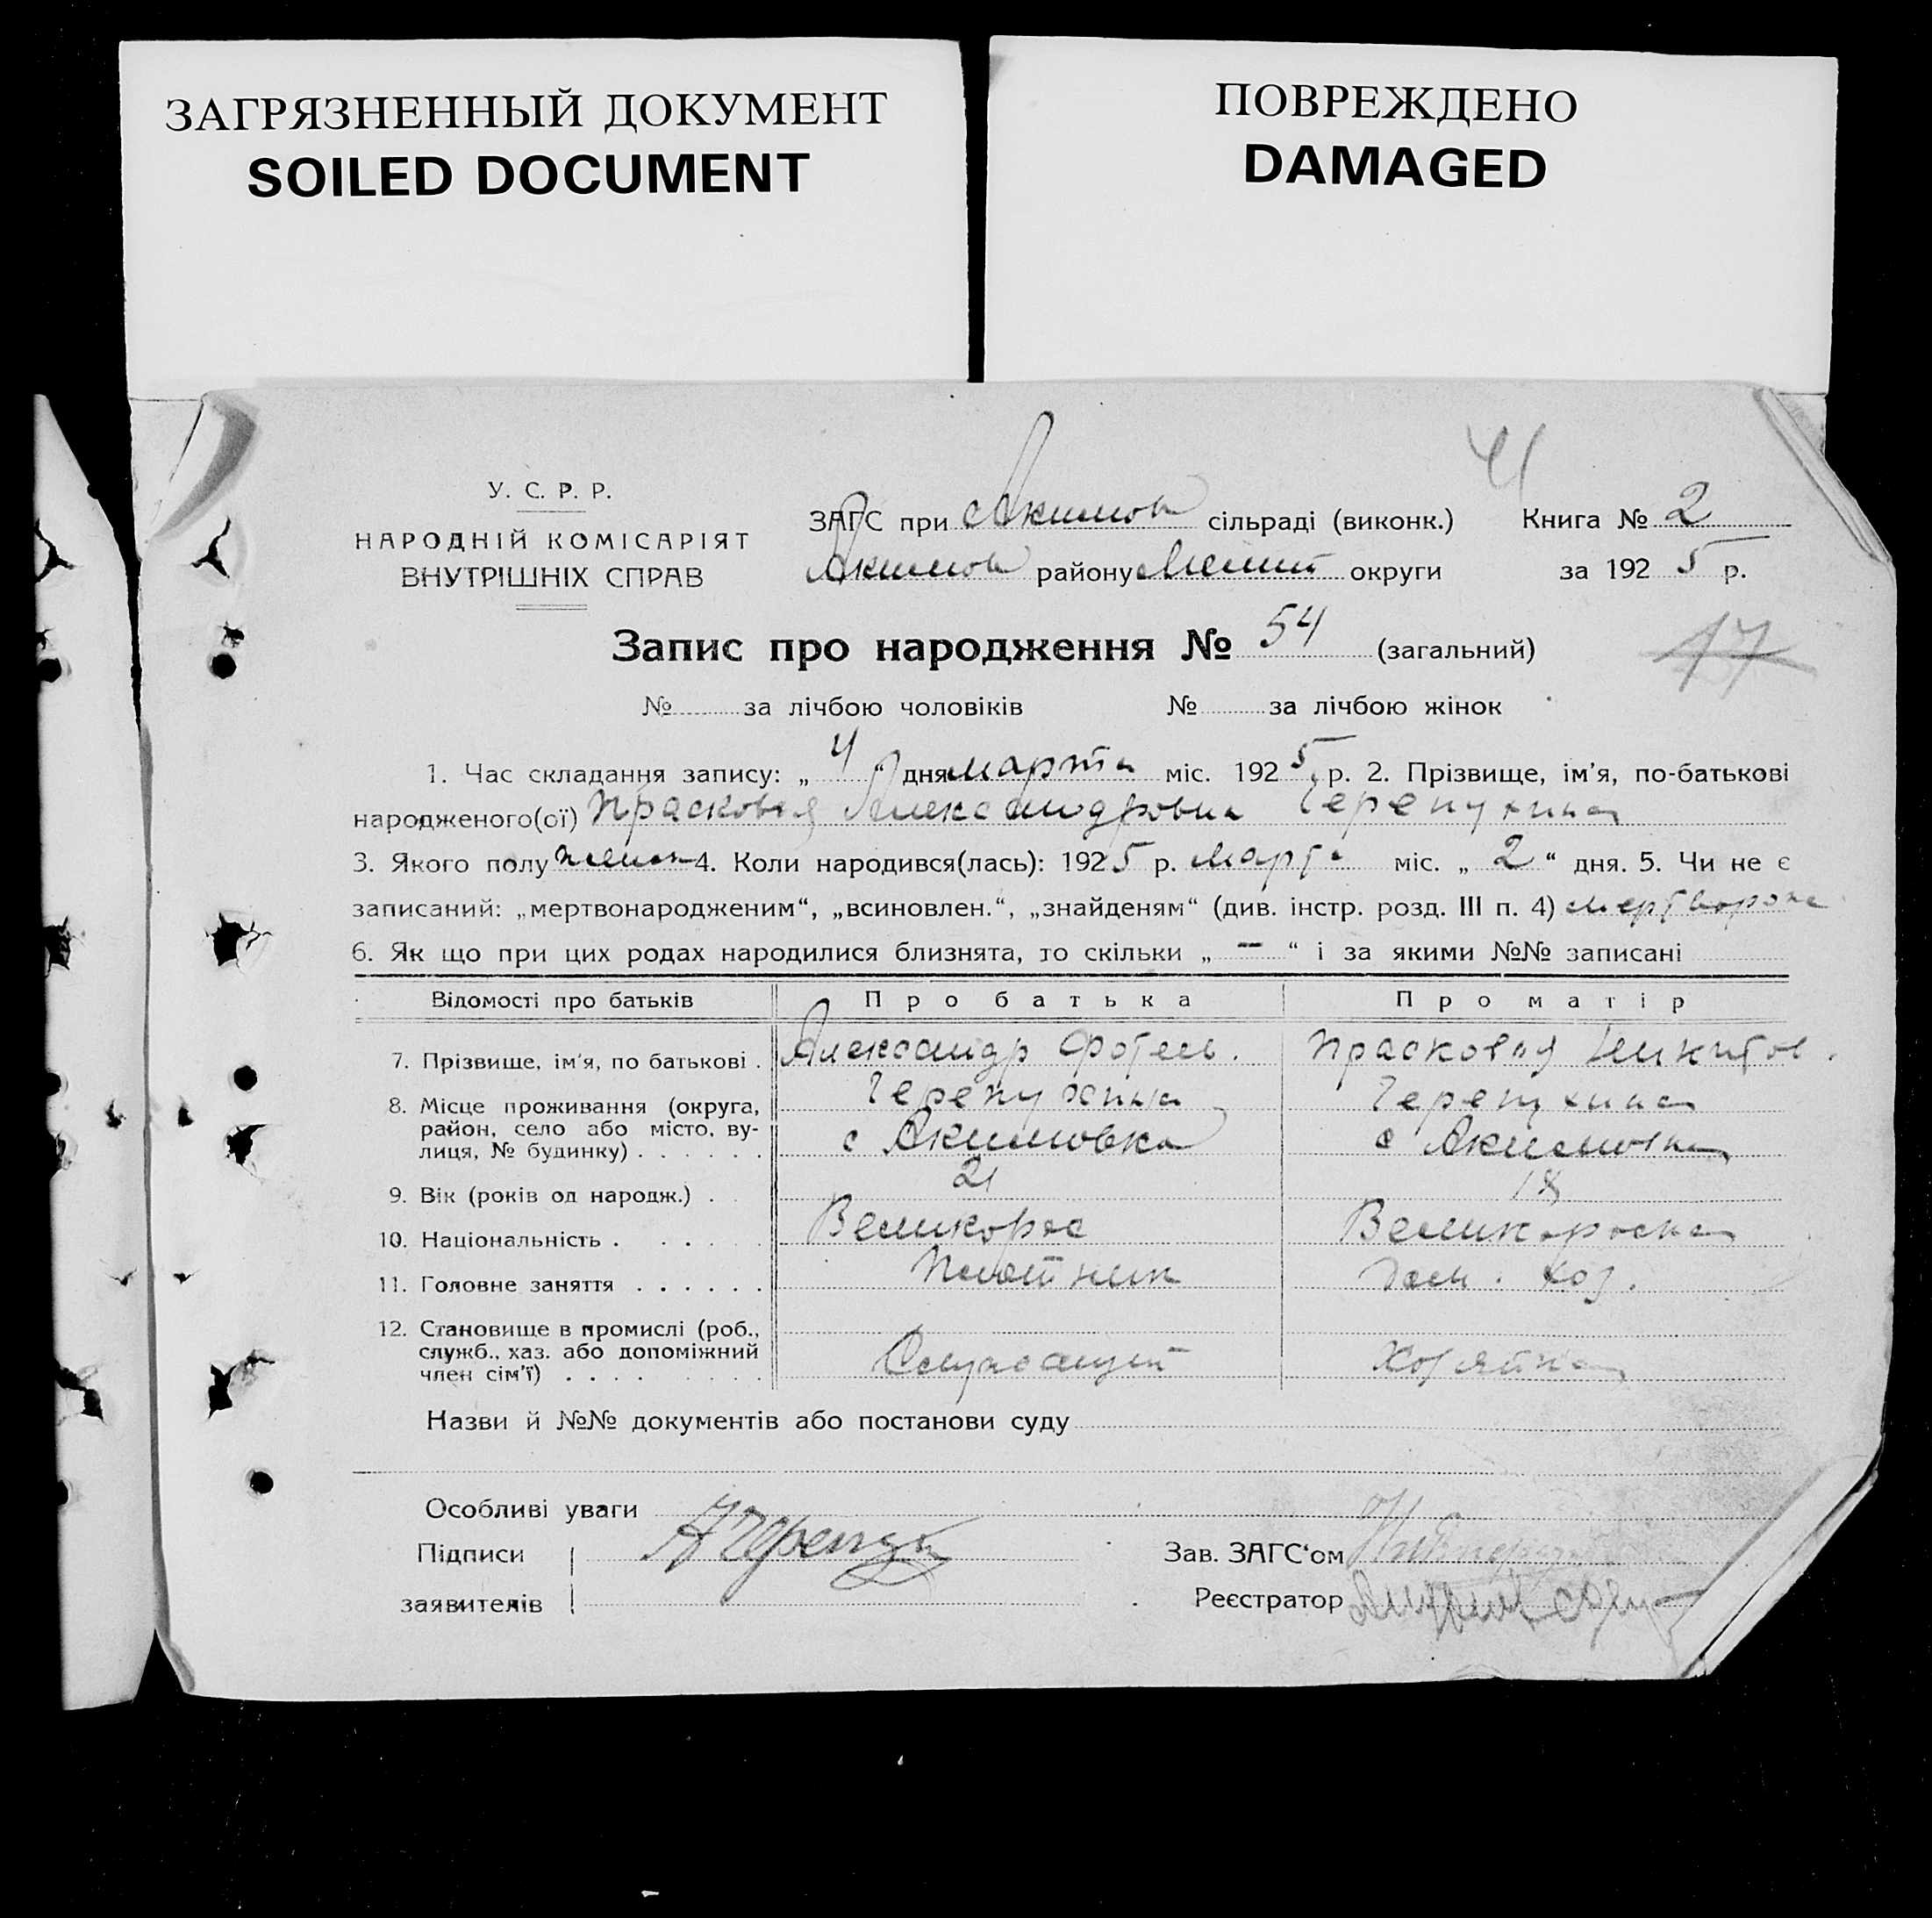 ЗАГРЯЗНЕННЫЙ ДОКУМЕНТ
SOILED DOCUMENT
ПОВРЕЖДЕНО
DAMAGED
41
У. С. Р. Р.
НАРОДНІЙ КОМІСАРІЯТ
ВНУТРІШНІХ СПРАВ
ЗАГС при Акимов сільраді (виконк.) Книга № 2
Акимов району Мелит округи за 1925 р.
Запис про народження № 54 (загальний)
17
№ за лічбою чоловіків № за лічбою жінок
1. Час складання запису: „4“ дня марта міс. 1925 р. 2. Прізвище, ім'я, по-батькові
народженого(ої) Прасковья Александровна Черепухина
3. Якого полу женск 4. Коли народився(лась): 1925 р. марта міс. „2“ дня. 5. Чи не є
записаний: „мертвонародженим“, „всиновлен.“, „знайденям“ (див. інстр. розд. III п. 4) мертворожд
6. Як що при цих родах народилися близнята, то скільки „—“ і за якими №№ записані
Відомості про батьків Про батька Про матір
7. Прізвище, ім'я, по батькові . Александр Фотеев. Прасковья Никитов.
Черепухин Черепухина
8. Місце проживання (округа,
район, село або місто, ву-
лиця, № будинку) . . . . . . с Акимовка с Акимовка
9. Вік (років од народж.) . . 21 18
10. Національність . . . . . Великорос Великороска
11. Головне заняття . . . . . . Плотник Дом. хоз.
12. Становище в промислі (роб.,
служб., хаз. або допоміжний
член сім'ї) . . . . . . . . . Служащий Хозяйка
Назви й №№ документів або постанови суду
Особливі уваги
Підписи
заявителів
Зав. ЗАГС'ом
Реєстратор